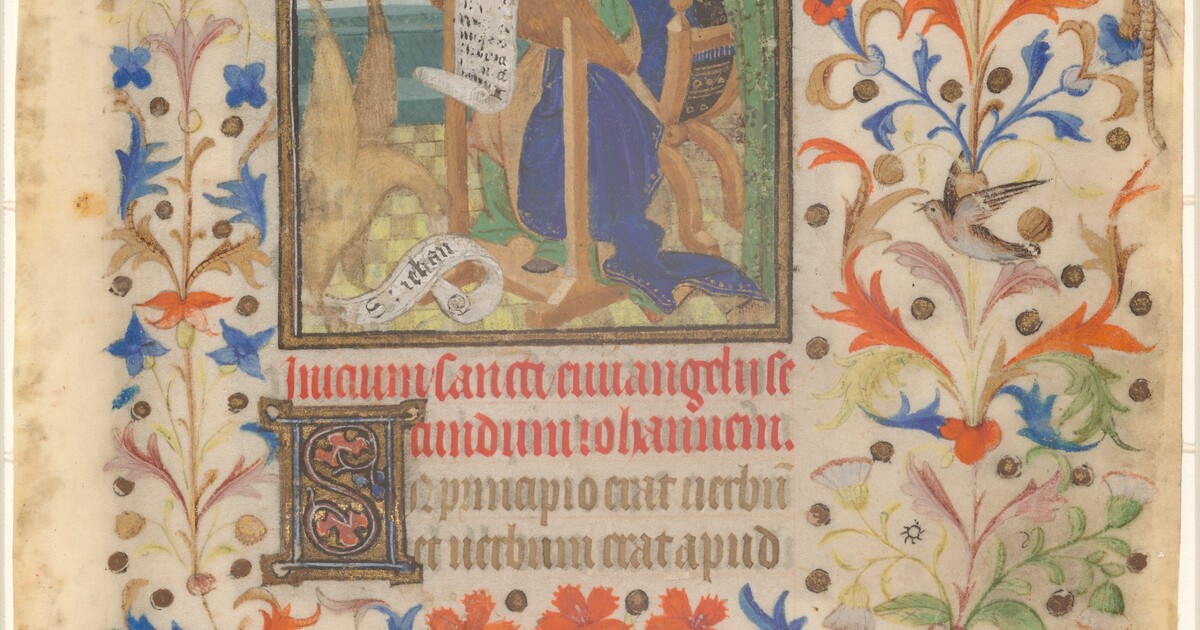 s. iehan
Inicium sancti euuangelii se
cundum iohannem.
In principio erat uerbū
et uerbum erat apud